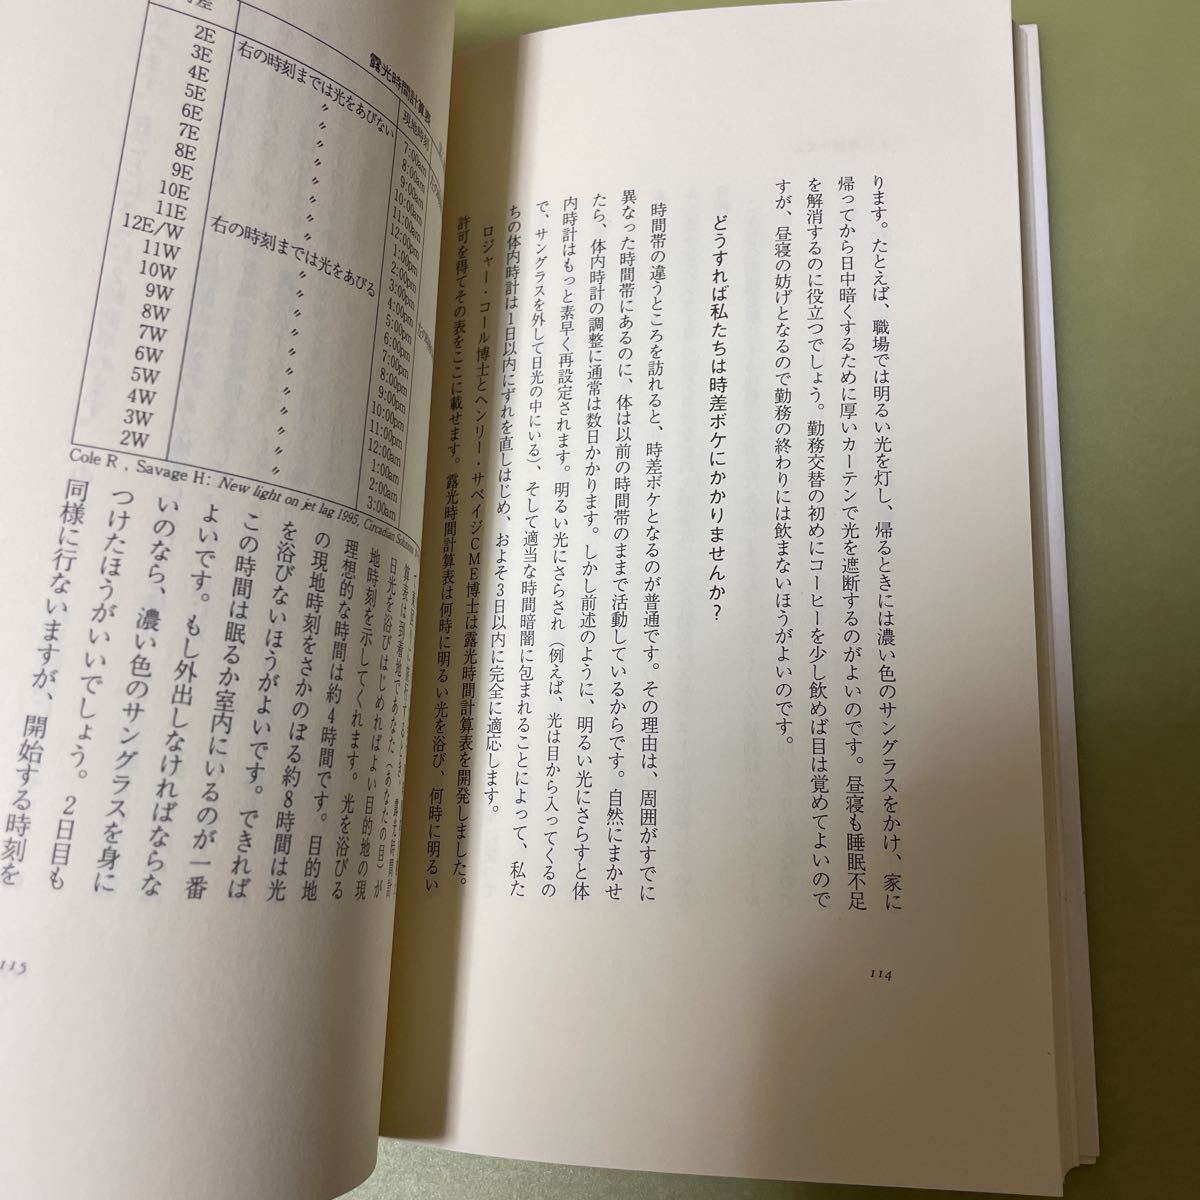 ります。たとえば、職場では明るい光を灯し、帰るときには濃い色のサングラスをかけ、家に
帰ってから日中暗くするために厚いカーテンで光を遮断するのがよいのです。昼寝も睡眠不足
を解消するのに役立つでしょう。勤務交替の初めにコーヒーを少し飲めば目は覚めてよいので
すが、昼寝の妨げとなるので勤務の終わりには飲まないほうがよいのです。
どうすれば私たちは時差ボケにかかりませんか?
時間帯の違うところを訪れると、時差ボケとなるのが普通です。その理由は、周囲がすでに
異なった時間帯にあるのに、体は以前の時間帯のままで活動しているからです。自然にまかせ
たら、体内時計の調整に通常は数日かかります。しかし前述のように、明るい光にさらすと体
内時計はもっと素早く再設定されます。明るい光にさらされ(例えば、光は目から入ってくるの
で、サングラスを外して日光の中にいる)、そして適当な時間暗闇に包まれることによって、私た
ちの体内時計は1日以内にずれを直しはじめ、およそ3日以内に完全に適応します。
ロジャー・コール博士とヘンリー・サベイジCME博士は露光時間計算表を開発しました。
許可を得てその表をここに載せます。露光時間計算表は何時に明るい光を浴び、何時に明るい
114
露光時間計算表
差
現地時刻
2E
3E
4E
5E
6E
7E
8E
9E
10E
11E
12E/W
11W
10W
9W
8W
7W
6W
5W
4W
3W
2W
右の時刻までは光をあびない
〃
〃
〃
〃
〃
〃
〃
〃
右の時刻までは光をあびる
〃
〃
〃
〃
〃
〃
〃
〃
7:00am
8:00am
9:00am
10:00am
11:00am
12:00pm
1:00pm
2:00pm
3:00pm
4:00pm
5:00pm
6:00pm
7:00pm
8:00pm
9:00pm
10:00pm
11:00pm
12:00am
1:00am
2:00am
3:00am
Cole R , Savage H: New light on jet lag 1995, Circadian
算表は到着地であなた(あなたの目)が
日光を浴びはじめればよい目的地の現
地時刻を示してくれます。光を浴びる
理想的な時間は約4時間です。目的地
の現地時刻をさかのぼる約8時間は光
を浴びないほうがよいです。できれば
この時間は眠るか室内にいるのが一番
よいです。もし外出しなければならな
いのなら、濃い色のサングラスを身に
つけたほうがいいでしょう。2日目も
同様に行ないますが、開始する時刻を
115